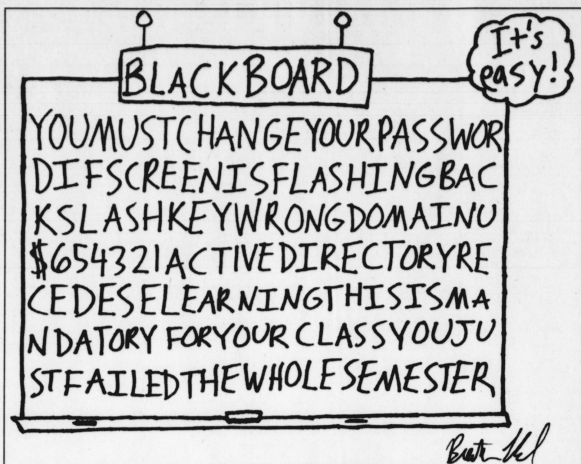 BLACKBOARD
It's
easy!
YOUMUSTCHANGEYOURPASSWOR
DIFSCREENISFLASHINGBAC
KSLASHKEYWRONGDOMAINU
$654321ACTIVEDIRECTORYRE
CEDESELEARNINGTHISISMA
NDATORY FORYOUR CLASSYOUJU
STFAILEDTHEWHOLESEMESTER